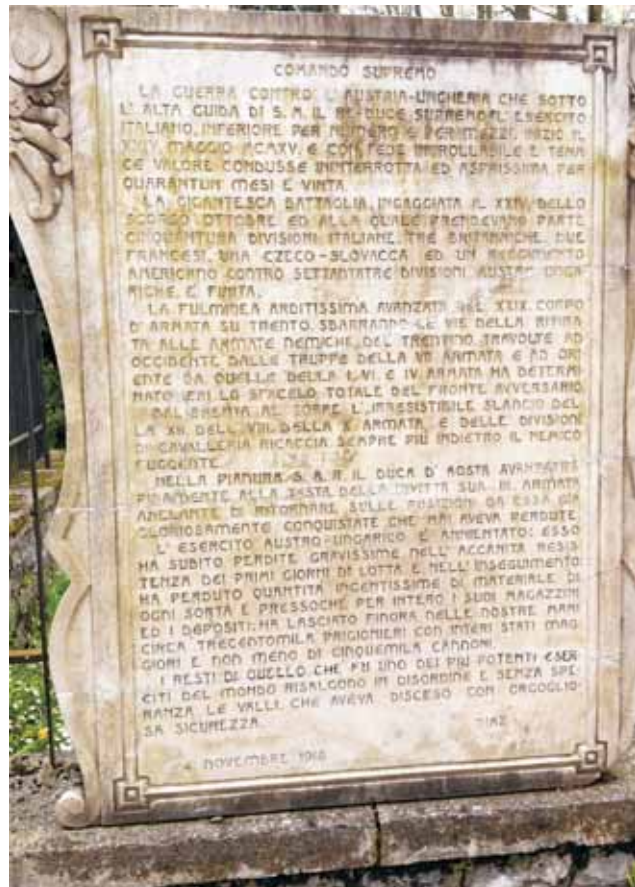 COMANDO SUPREMO
LA GUERRA CONTRO L'AUSTRIA-UNGHERIA CHE SOTTO
L'ALTA GUIDA DI S.A. IL RE-DUCE SUPREMO L'ESERCITO
ITALIANO, INFERIORE PER NUMERO E PER MEZZI, INIZIÒ IL
XXIV MAGGIO MCMXV, E CON FEDE INCROLLABILE E TENA
CE VALORE CONDUSSE ININTERROTTA ED ASPRISSIMA PER
QUARANTUN MESI È VINTA.
LA GIGANTESCA BATTAGLIA, INGAGGIATA IL XXIV DELLO
SCORSO OTTOBRE ED ALLA QUALE PRENDEVANO PARTE
CINQUANTUNA DIVISIONI ITALIANE, TRE BRITANNICHE, DUE
FRANCESI, UNA CZECO-SLOVACCA ED UN REGGIMENTO
AMERICANO CONTRO SETTANTATRE DIVISIONI AUSTRO UNGA
RICHE, È FINITA.
LA FULMINEA ARDITISSIMA AVANZATA DEL XXIX CORPO
D'ARMATA SU TRENTO, SBARRANDO LE VIE DELLA RITIRA
TA ALLE ARMATE NEMICHE DEL TRENTINO, TRAVOLTE AD
OCCIDENTE DALLE TRUPPE DELLA VII ARMATA E AD ORI
ENTE DA QUELLE DELLA I, VI E IV ARMATA HA DETERMI
NATO IERI LO SFACELO TOTALE DEL FRONTE AVVERSARIO
DAL BRENTA AL TORRE L'IRRESISTIBILE SLANCIO DEL
LA XII, DELL'VIII, DELLA X ARMATA, E DELLE DIVISIONI
DI CAVALLERIA RICACCIA SEMPRE PIÙ INDIETRO IL NEMICO
FUGGENTE.
NELLA PIANURA S.A.R. IL DUCA D'AOSTA AVANZA RA
PIDAMENTE ALLA TESTA DELLA INVITTA SUA III. ARMATA
ANELANTE DI RITORNARE SULLE POSIZIONI DA ESSA GIÀ
GLORIOSAMENTE CONQUISTATE CHE MAI AVEVA PERDUTE
L'ESERCITO AUSTRO-UNGARICO È ANNIENTATO: ESSO
HA SUBITO PERDITE GRAVISSIME NELL'ACCANITA RESIS
TENZA DEI PRIMI GIORNI DI LOTTA E NELL'INSEGUIMENTO
HA PERDUTO QUANTITÀ INGENTISSIME DI MATERIALE DI
OGNI SORTA E PRESSOCHÈ PER INTERO I SUOI MAGAZZINI
ED I DEPOSITI: HA LASCIATO FINORA NELLE NOSTRE MANI
CIRCA TRECENTOMILA PRIGIONIERI CON INTERI STATI MAG
GIORI E NON MENO DI CINQUEMILA CANNONI
I RESTI DI QUELLO CHE FU UNO DEI PIÙ POTENTI ESER
CITI DEL MONDO RISALGONO IN DISORDINE E SENZA SPE
RANZA LE VALLI, CHE AVEVA DISCESO CON ORGOGLIO
SA SICUREZZA.
DIAZ
4 NOVEMBRE 1918